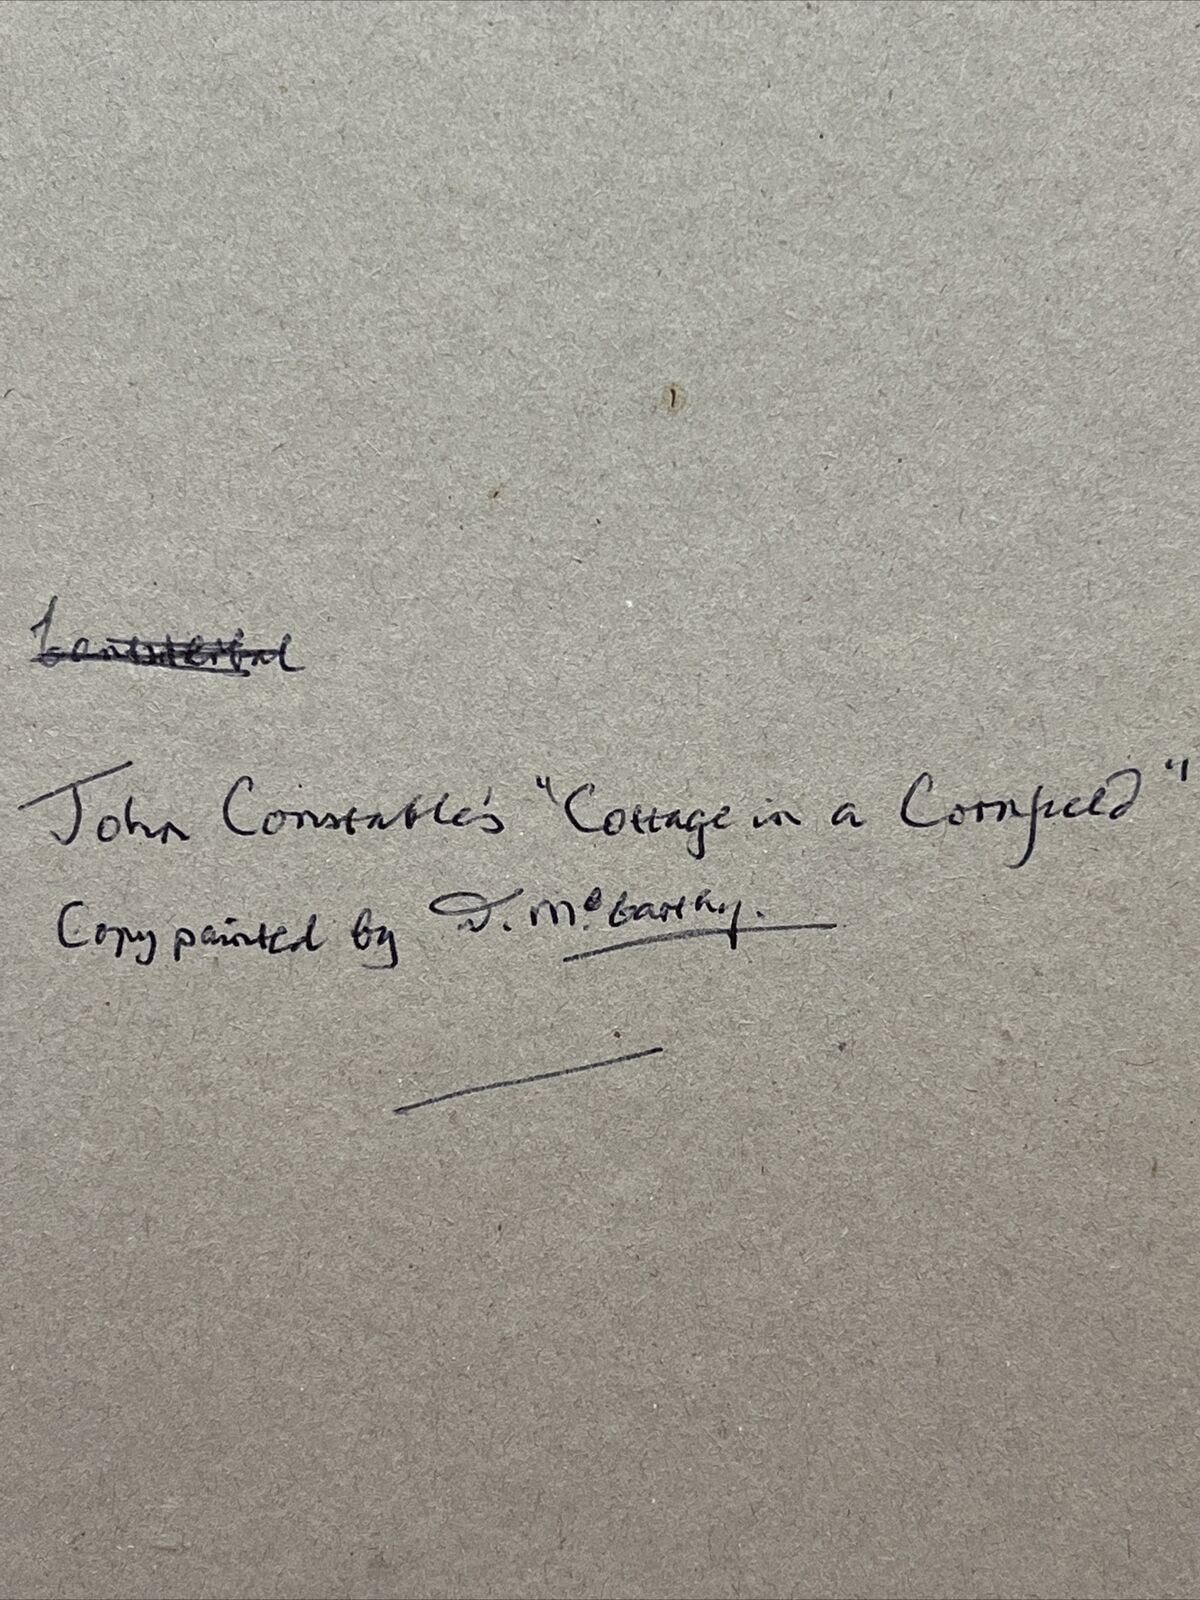 John Constable's "Cottage in a Cornfield"
Copy painted by D. McCarthy.